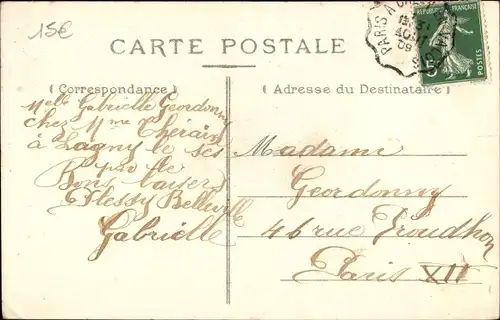 15€
CARTE POSTALE
PARIS A
AOUT
09
REPUBLIQUE FRANÇAISE
5
POSTES
(Correspondance)
(Adresse du Destinataire)
Melle Gabrielle Geordonny
chez Mme
à Lagny le sec
par le
Plessy Belleville
Bons baisers
Gabrielle
Madame
Geordonny
46 rue Proudhon
Paris XII